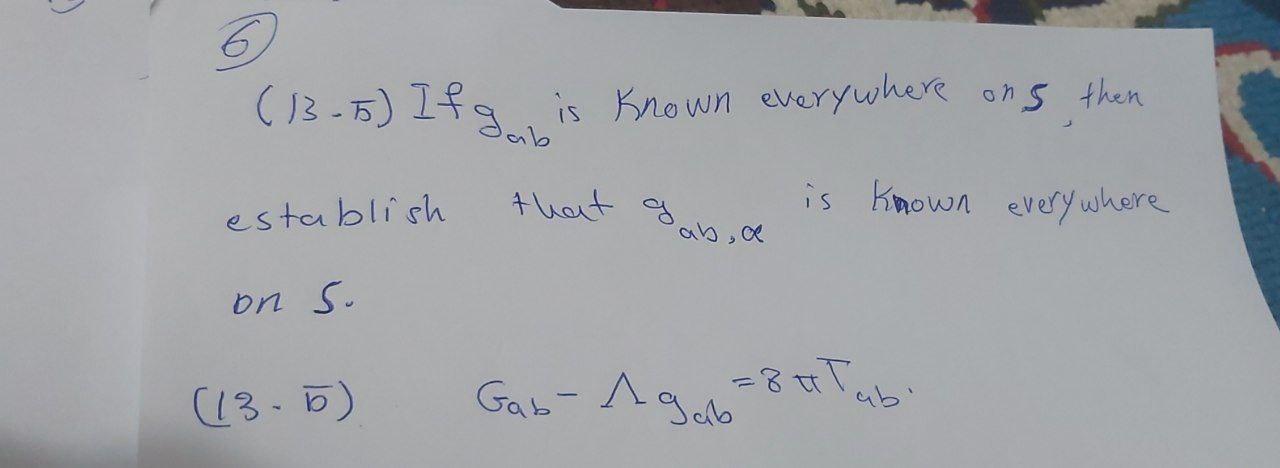 6
(13-5) If g_ab is known everywhere on S, then
establish that g_ab,α is known everywhere
on S.
(13-b̄) G_ab - Λ g_ab = 8πT_ab.